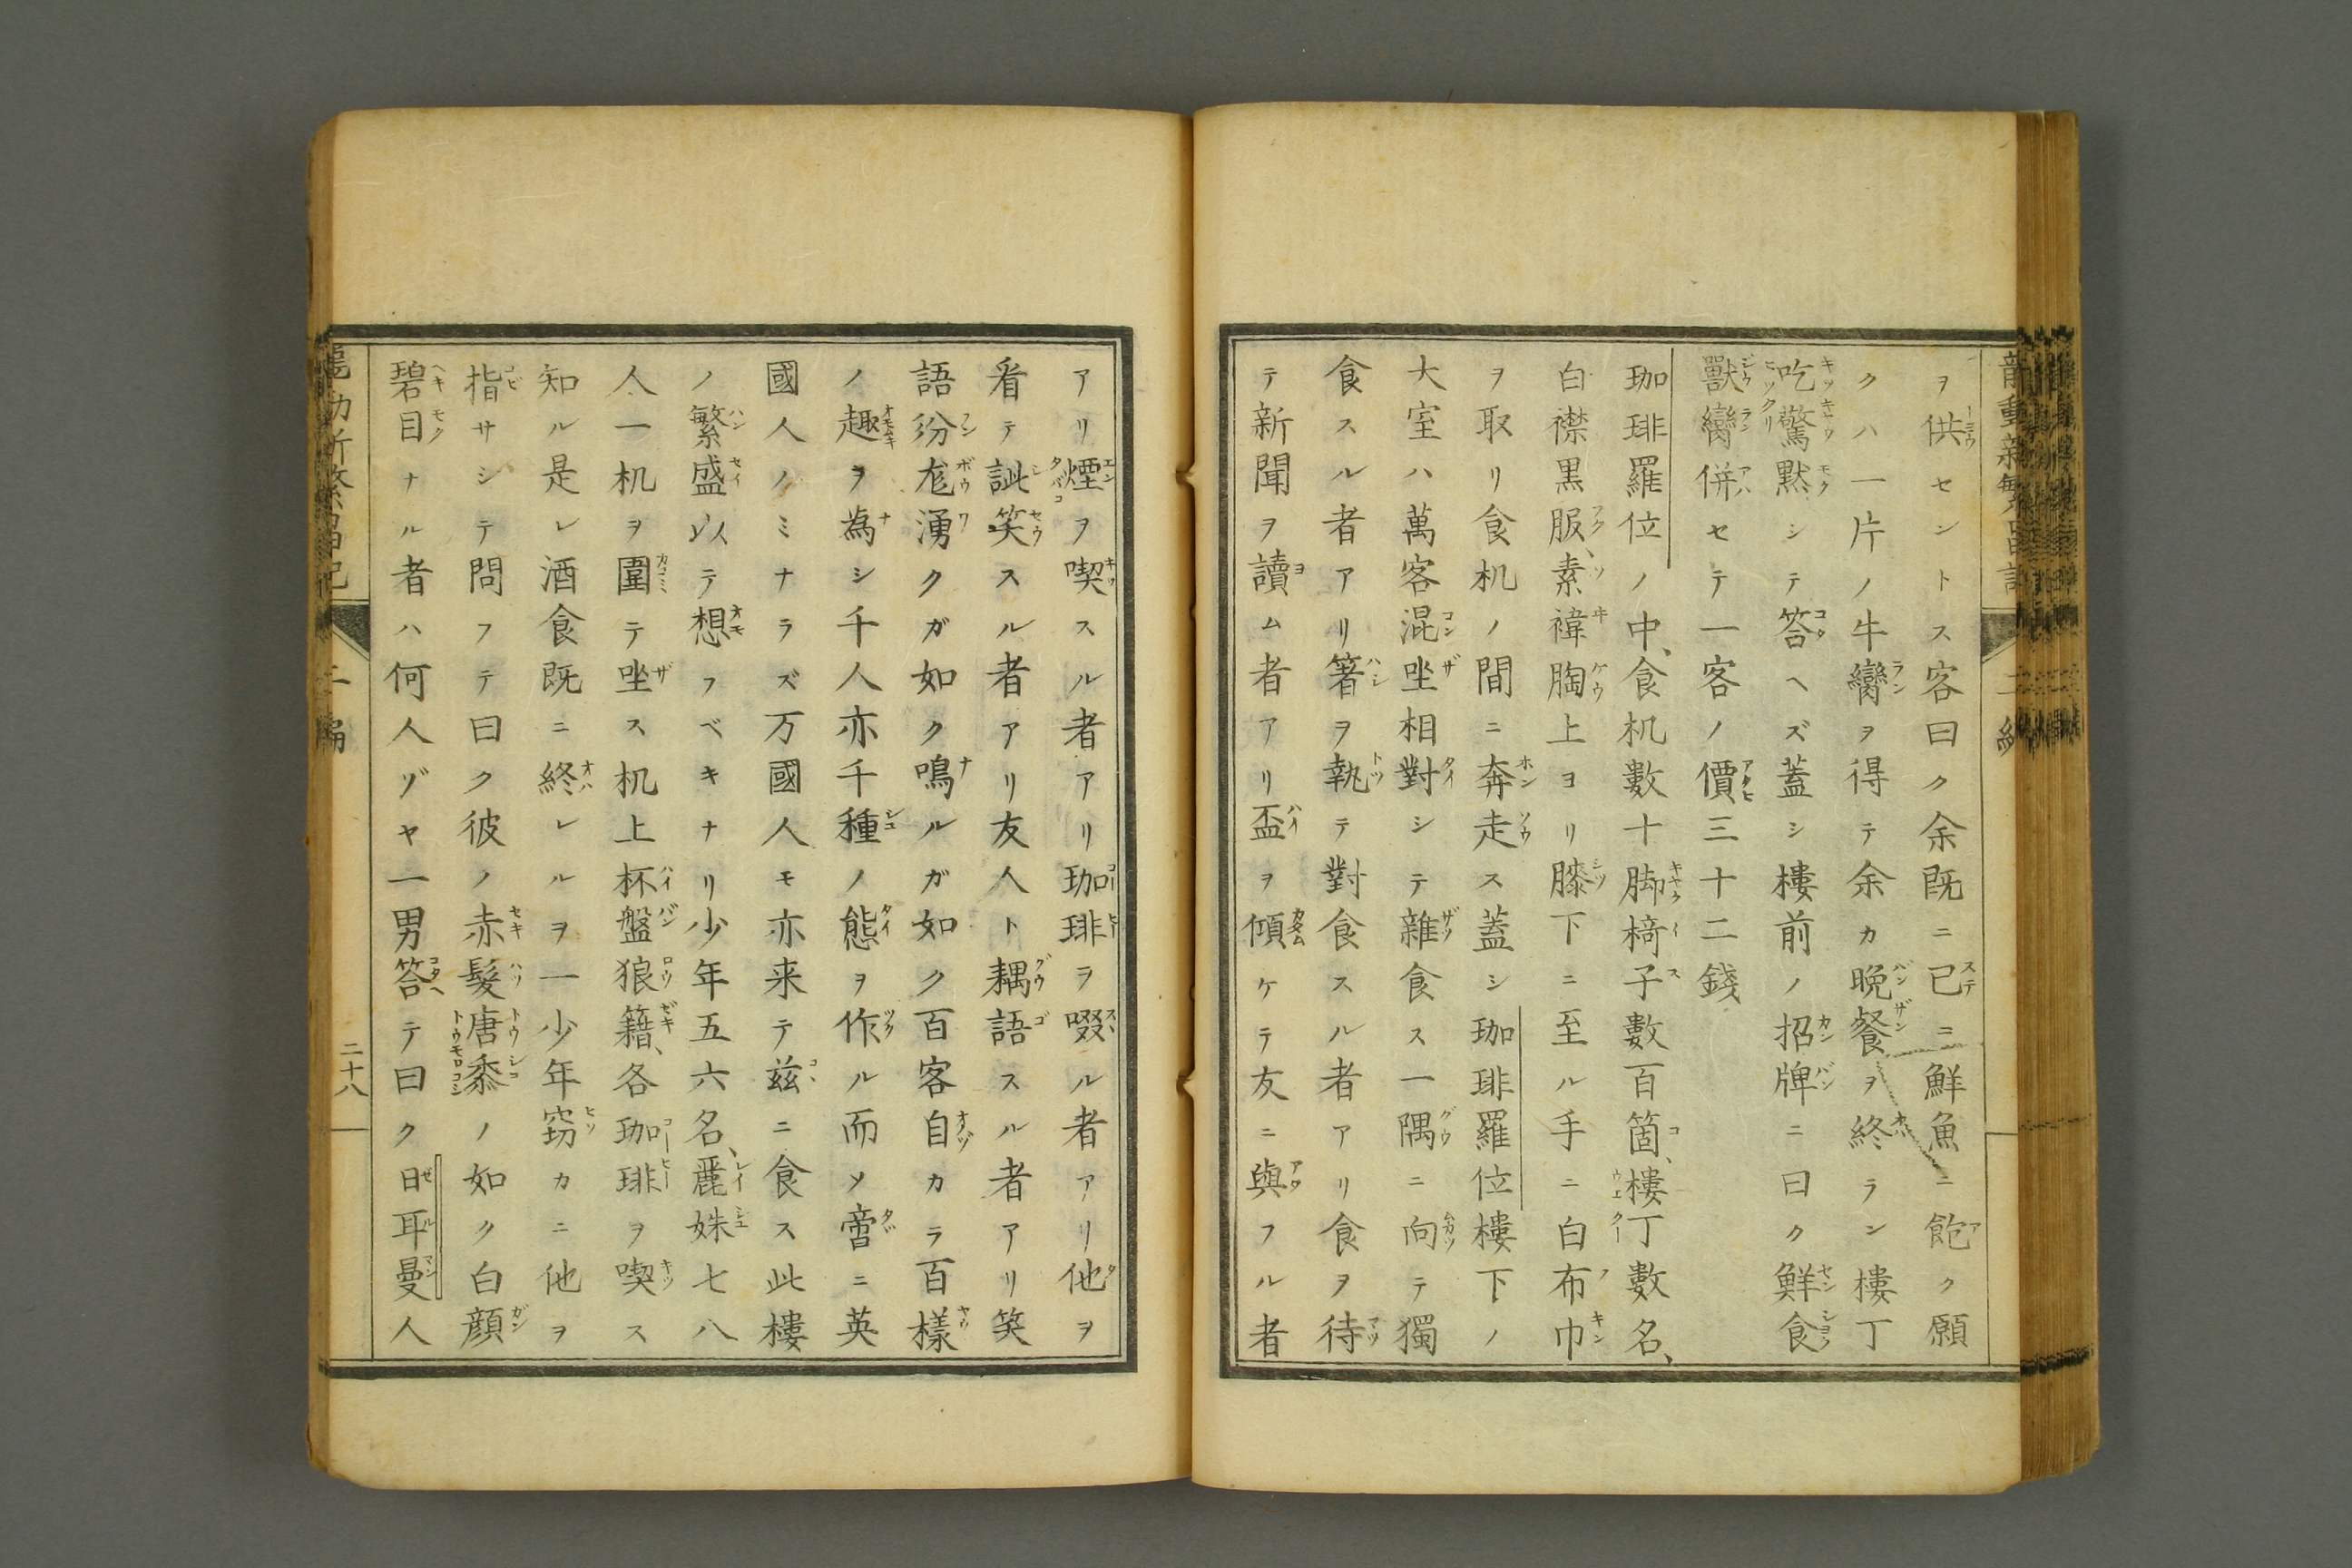 ヲ供セントス客曰ク余既ニ已ニ鮮魚ニ飽ク願
クハ一片ノ牛臠ヲ得テ余カ晩餐ヲ終ラン樓丁
吃驚黙シテ答ヘズ蓋シ樓前ノ招牌ニ曰ク鮮食
獸臠併セテ一客ノ價三十二錢
珈琲羅位ノ中、食机數十脚椅子數百箇、樓丁數名、
白襟黒服、素褘胸上ヨリ膝下ニ至ル手ニ白布巾
ヲ取リ食机ノ間ニ奔走ス蓋シ珈琲羅位樓下ノ
大室ハ萬客混坐相對シテ雜食ス一隅ニ向テ獨
食スル者アリ箸ヲ執テ對食スル者アリ食ヲ待
テ新聞ヲ讀ム者アリ盃ヲ傾ケテ友ニ與フル者
アリ煙ヲ喫スル者アリ珈琲ヲ啜ル者アリ他ヲ
看テ訿笑スル者アリ友人ト耦語スル者アリ笑
語紛尨湧クガ如ク鳴ルガ如ク百客自カラ百樣
ノ趣ヲ為シ千人亦千種ノ態ヲ作ル而メ啻ニ英
國人ノミナラズ万國人モ亦来テ茲ニ食ス此樓
ノ繁盛以テ想フベキナリ少年五六名、麗姝七八
人一机ヲ圍テ坐ス机上杯盤狼籍、各珈琲ヲ喫ス
知ル是レ酒食既ニ終レルヲ一少年窃カニ他ヲ
指サシテ問フテ曰ク彼ノ赤髮唐黍ノ如ク白顔
碧目ナル者ハ何人ゾヤ一男答テ曰ク日耳曼人
二編
二十八